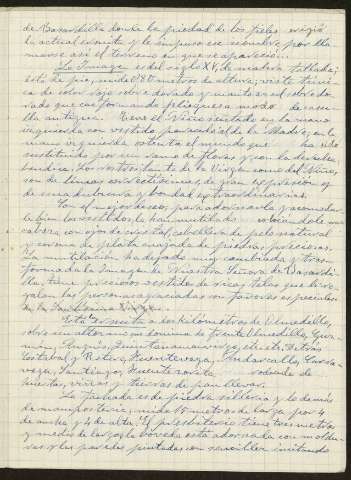 de Basardilla donde la piedad de los fieles erigió
la actual ermita y le impuso ese nombre por lla-
marse así el terreno en que se apareció...
La Imagen es del siglo XV, de madera tallada;
está de pie, mide 0'80 metros de altura; viste túni-
ca de color rojo sobre dorado y manto azul sobre do-
rado que cae formando pliegues a modo de casu-
lla antigua. Tiene el Niño sentado en la mano
izquierda con vestido parecido al de la Madre; en la
mano izquierda ostenta el mundo que ha sido
sustituido por un ramo de flores y con la derecha
bendice. Los rostros tanto de la Virgen como del Niño,
son de líneas correctísimas, de gran expresión y
de una dulzura y bondad extraordinarias.
Con el mejor deseo, para adornarla y acomodar-
le bien los vestidos, le han mutilado colocándole una
cabeza con ojos de cristal, cabellera de pelo natural
y corona de plata cuajada de piedras preciosas.
La mutilación ha dejado muy cambiada y trans-
formada la Imagen de Nuestra Señora de Basardi-
lla, tiene preciosos vestidos de ricas telas que le re-
galan las personas agraciadas con favores especiales
de la Santísima Virgen.
Esta ermita dos kilómetros de Olmedillo,
sobre un altozano común de frente Olmedillo, Guz-
mán, Quintanamanvirgo,
y Fuentevega,
vega, Santiago, rodeado de
huertas, viñas y tierras de pan llevar.
La fachada es de piedra sillería y lo demás
de mampostería; mide 18 metros de larga por 4
de ancha y 4 de alta. El presbiterio tiene tres metros
y medio de largo; la bóveda está adornada con moldu-
ras y las paredes pintadas con sencillez imitando